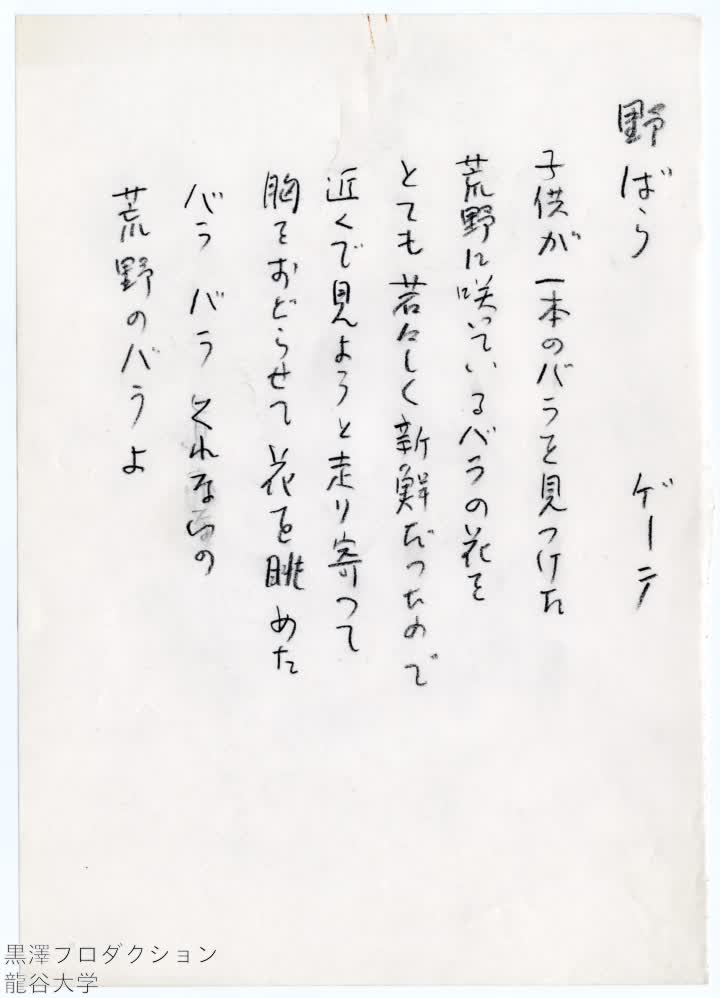 野ばら　ゲーテ
子供が一本のバラを見つけた
荒野に咲いているバラの花を
とても若々しく新鮮だったので
近くで見ようと走り寄って
胸をおどらせて花を眺めた
バラ　バラ　くれないの
荒野のバラよ
黒澤プロダクション
龍谷大学